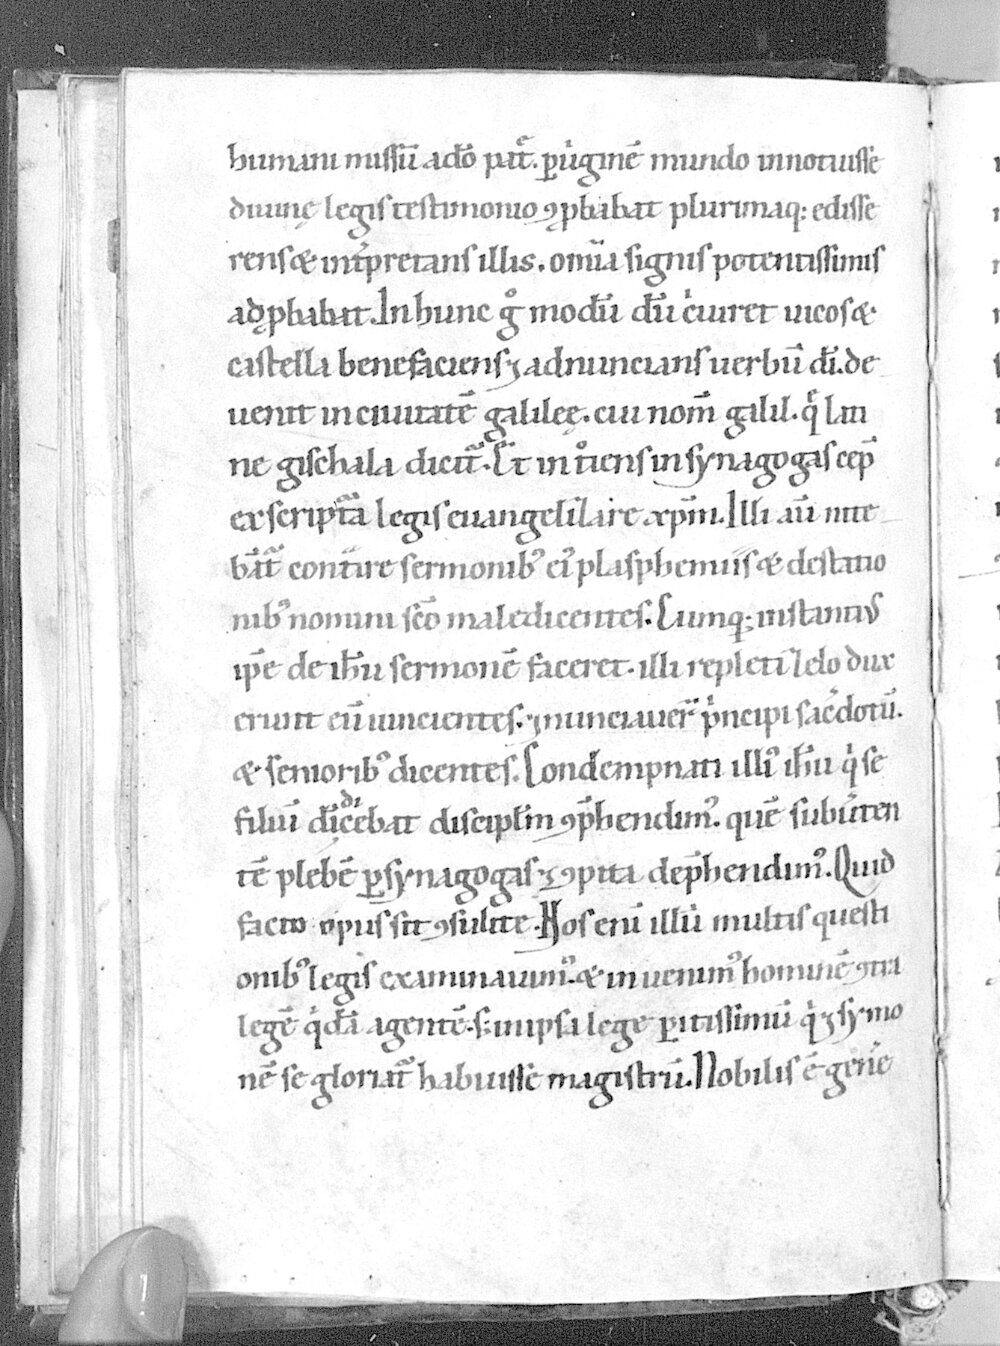 humani missū a dō patͤ. ꝑ ůginē mundo innotuisse
diuinę legis testimonio ꝯꝓbabat plurimaq; edisse
rens & int̾pretans illis. om̄ia signis potentissimis
adꝓbabat. In hunc gͦ modū dū cͥcuiret uicos &
castella benefaciens ⁊ adnuncians uerbū dī. de
uenit in ciuitatē galileę. cui nom̄ galil. qͤ lati
ne gischala dicit᷑. Et int̊iens in synagogas cep̄
ex scriptͣa legis euangelizare xp̄m. Illi aū nite
bāt᷑ contͣire sermonibꝰ eiꝰ plasphemiis & destatio
nibꝰ nomini scō maledicentes. Cumq; instantiꝰ
ip̄e de ih̄u sermonē faceret. illi repleti zelo dux
erunt eū uincientes. ⁊ nunciauer̄ pͥncipi sac̾dotū.
& senioribꝰ dicentes. Condempnati illiꝰ ih̄u qͥ se
filiū dī dicebat discipl̄m ꝯp̄hendimꝰ. quē subu̾ten
tē plebē ꝑ synagogas ⁊ ꝯpita dep̄hendimꝰ. Quid
facto opus sit ꝯsulite. Nos enī illū multis questi
onibꝰ legis examinauimꝰ. & inuenimꝰ hominē ꝯtra
legē qͥdā agentē. s; in ipsa lege ꝑitissimū qͥ ⁊ symo
nē se gloriat᷑ habuisse magistrū. Nobilis ē gen̾e